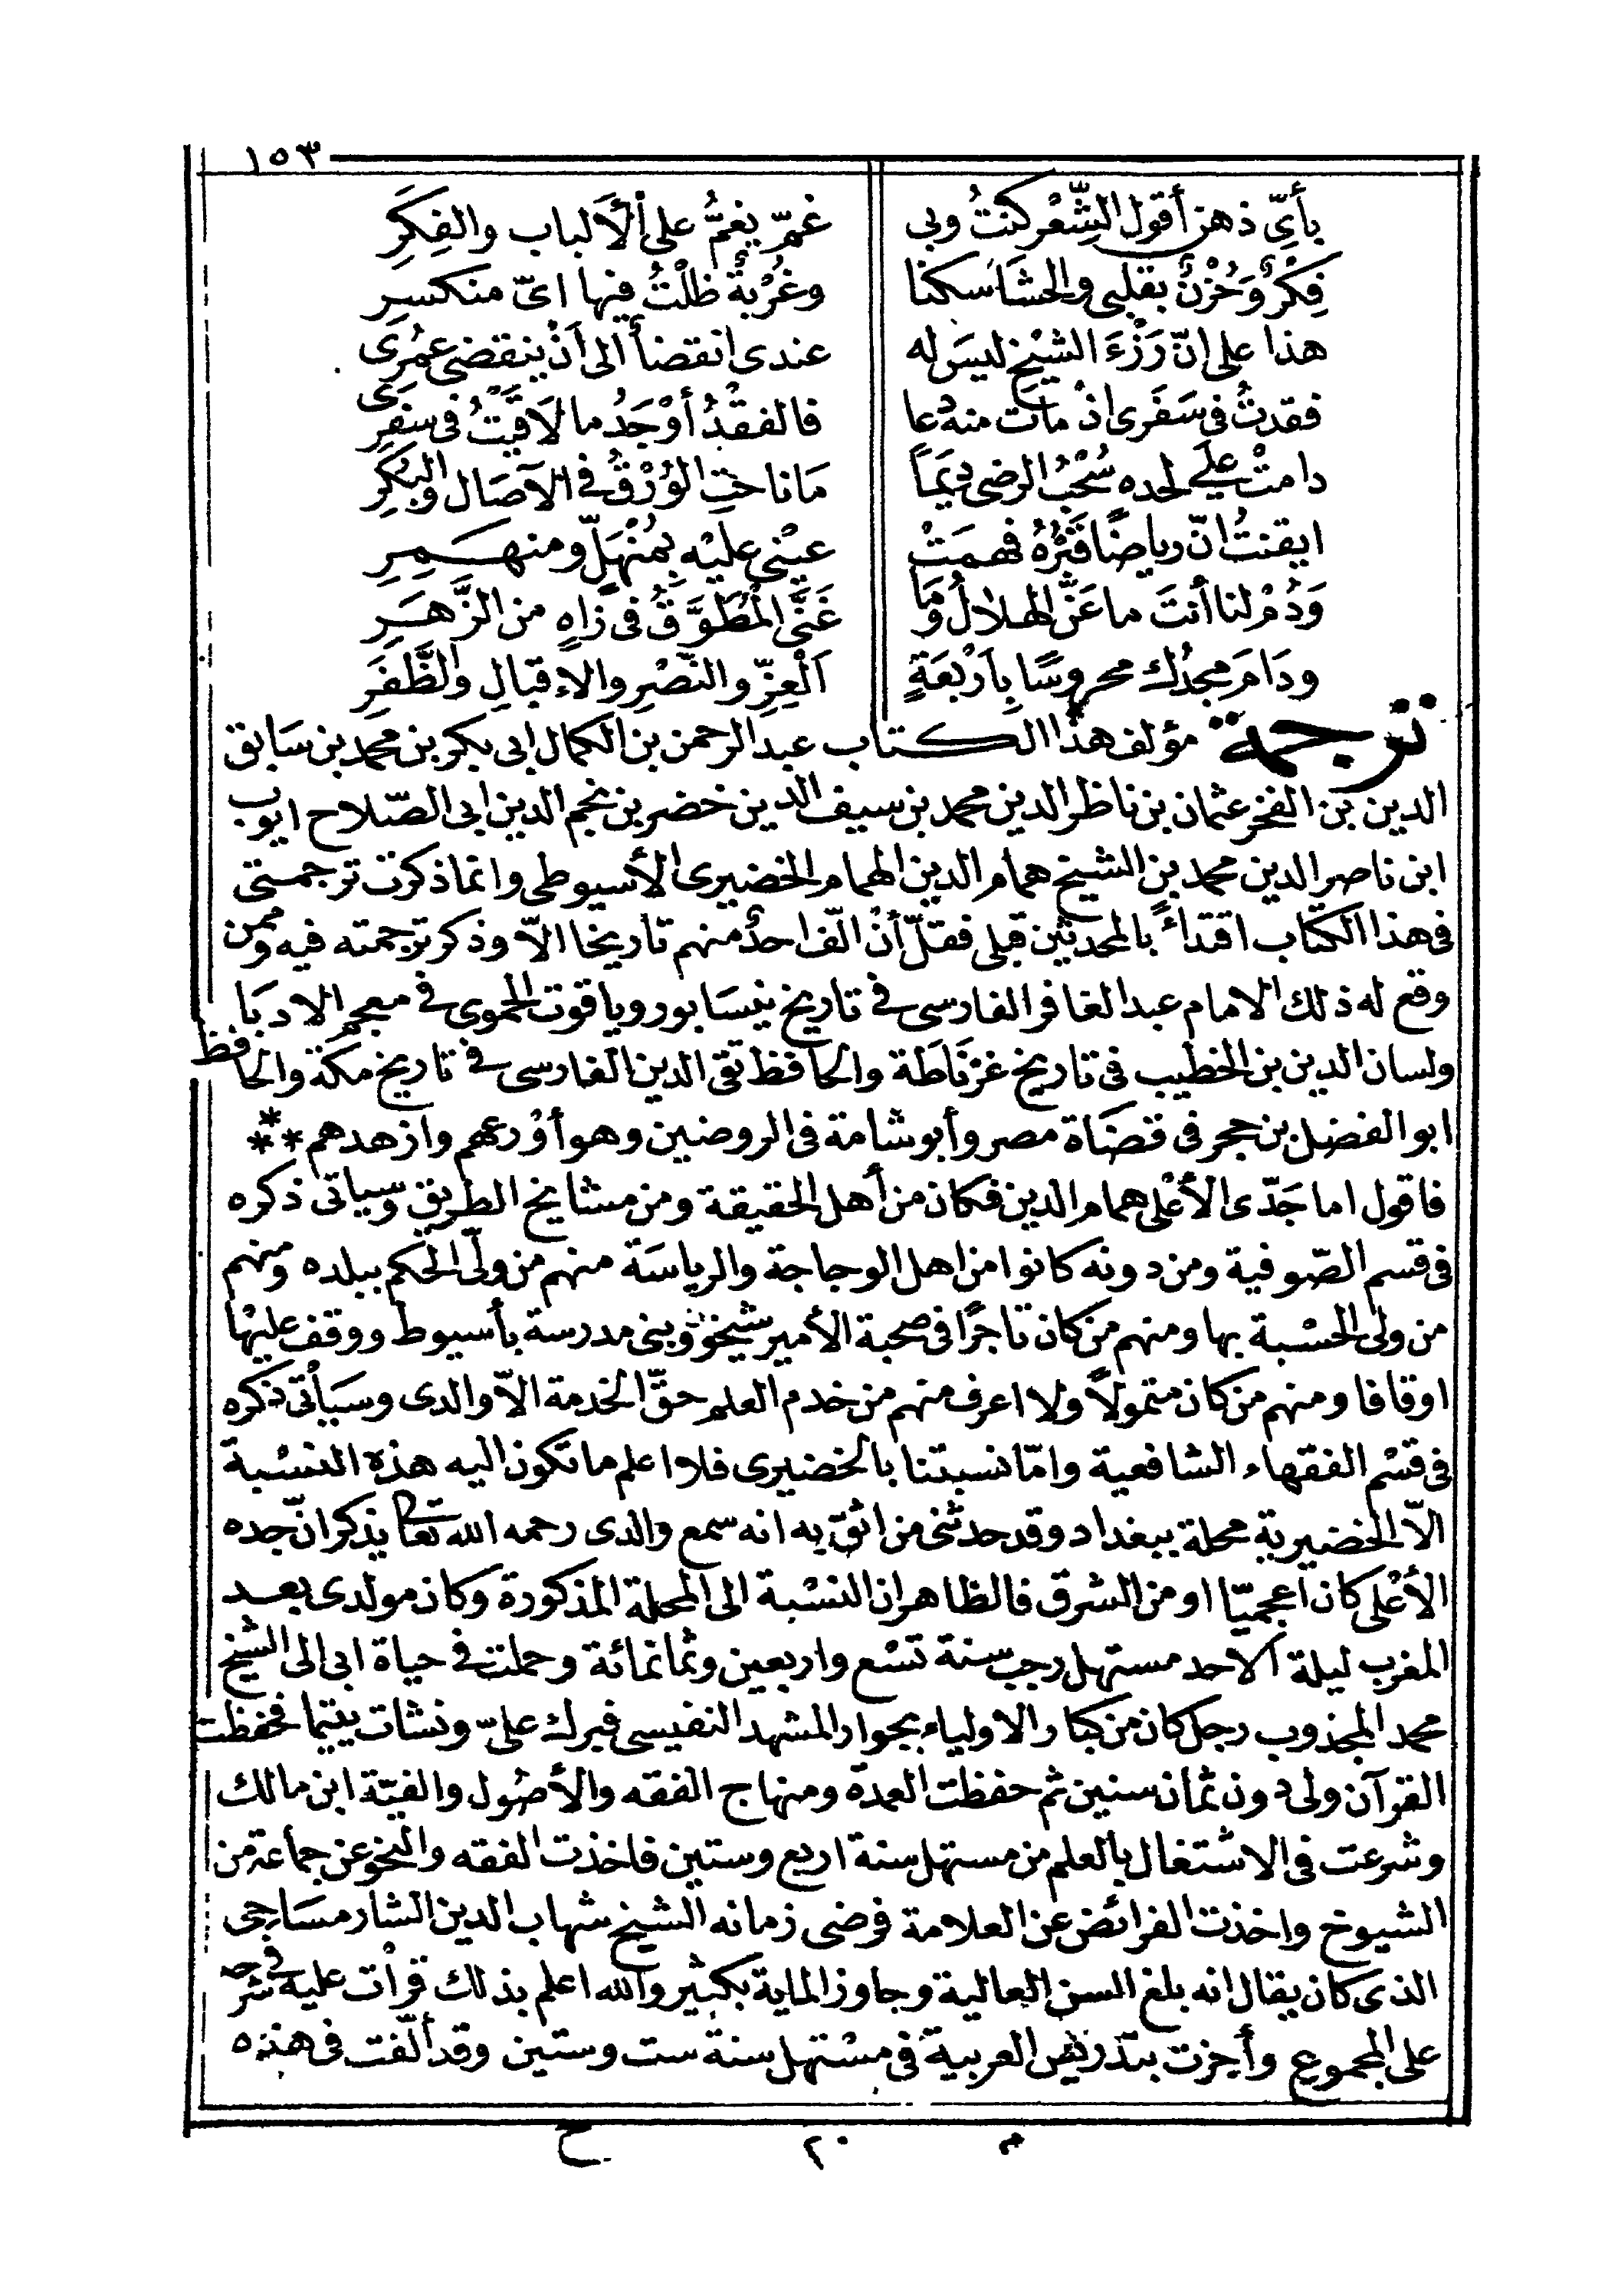 ١٥٣
بأيّ ذهن أقول الشّعْر كنتُ وبى غمّ يغمُّ على ألاَلباب والفِكَرِ
فِكْرٌ وَحُزْنٌ بقلبى والحشَا سكنا وغُرْبةٌ ظَلْتُ فيها اىّ منكسرِ
هذا على انّ رَزْءَ الشيْخ ليسَ له عندى انقضأ الى اَنْ ينقضى عمُرى
فقدتُ فى سَفَرى اذْ ماتَ منه دعا فالفقْدُ أوْجَدُ ما لاَقَيْتُ فى سفَرى
دامتْ عَلى لحده سُحْبُ الرضى دِيَماً مَا ناحَتِ الوُرْقُ فى الآصَال والبُكَرِ
ايقنتُ انّ رياضًا قَبْرُهُ فهمَتْ عيْنى عليْه بِمُنْهَلّ ومنهـمِرِ
وَدُمْ لنا أنتَ ما عَنَّ الهلالُ وَمَا غَنَّى المُطَوَّقُ فى زَاهٍ من الزَّهَرِ
ودَامَ مجدُك محروسًا بِاَرْبَعَةٍ اَلْعِزِّ والنّصْرِ والاِقبَالِ والظَّفَرِ
ترجمة مؤلف هذا الكتاب عبد الرحمن بن الكمال ابى بكر بن محمد بن سَابق
الدين بن الفخر عثمان بن ناظر الدين محمد بن سيف الدين خضر بن نجم الدين ابى الصّلاح ايوب
ابن ناصر الدين محمد بن الشيخ همام الدين الهمام الخضيرى الأسيوطى وانما ذكرت ترجمتى
فى هذا الكتاب اقتداءً بالمحدثين قبلى فقلّ أنْ الّف احدٌ منهم تاريخا الاّ وذكر ترجمته فيه وممن
وقع له ذلك الامام عبد الغافر الفارسى فى تاريخ نيسَابور وياقوت الحموى فى معجم الادبَا
ولسان الدين بن الخطيب فى تاريخ غرْنَاطَة والحافظ تقى الدين الفارسى فى تاريخ مكة والحافظ
ابو الفضل بن حجر فى قضَاة مصر وأبو شامة فى الروضين وهو أوْرعهم وازهدهم ***
فاقول اما جَدّى الأعْلى همام الدين فكان من أهل الحقيقة ومن مشايخ الطريق وسياتى ذكره
فى قسم الصّوفية ومن دونه كانوا من اهل الوجاجة والرياسَة منهم من ولّى الحكم ببلده ومنهم
من ولى الحسْبة بها ومنهم من كان تاجرًا فى صحبة الأمير شيخو وبنى مدرسة بأسيوط ووقف عليْها
اوقافا ومنهم من كان متمولاً ولا اعرف منهم من خدم العلم حقّ الخدمة الاّ والدى وسيَأتى ذكره
فى قسْم الفقهاء الشافعية وامّا نسبتنا بالخضيرى فلا اعلم ما تكون اليه هذه النسْبة
الاّ الخضيرية محلة ببغداد وقد حدثنى من اثق به انه سمع والدى رحمه الله تعالى يذكر انّ جده
الأعْلى كان اعجميّا او من الشرق فالظاهر ان النسْبة الى المحلة المذكورة وكان مولدى بعـد
المغرب ليلة الاحد مستهل رجب سنة تسْع واربعين وثمانمائة وحملت فى حياة ابى الى الشيخ
محمد المجذوب رجل كان من كبار الاولياء بجوار المشهد النفيسى فبرك علىّ ونشات يتيما فحفظت
القرآن ولى دون ثمان سنين ثم حفظت العمدة ومنهاج الفقه والأصُول والفيّة ابن مالك
وشرعت فى الاشتغال بالعلم من مستهل سنة اربع وستين فاخذت الفقه والنحو عن جماعة من
الشيوخ واخذت الفرائض عن العلامة فرضى زمانه الشيخ شهاب الدين الشارمسَاحى
الذى كان يقال انه بلغ السن العالية وجاوز الماية بكثير والله اعلم بذلك قرأت عليه فى شرحه
على المجموع وأجزت بتدريس العربية فى مسْتهل سنة ست وستين وقد ألّفت فى هذه
م ٢٠ ح